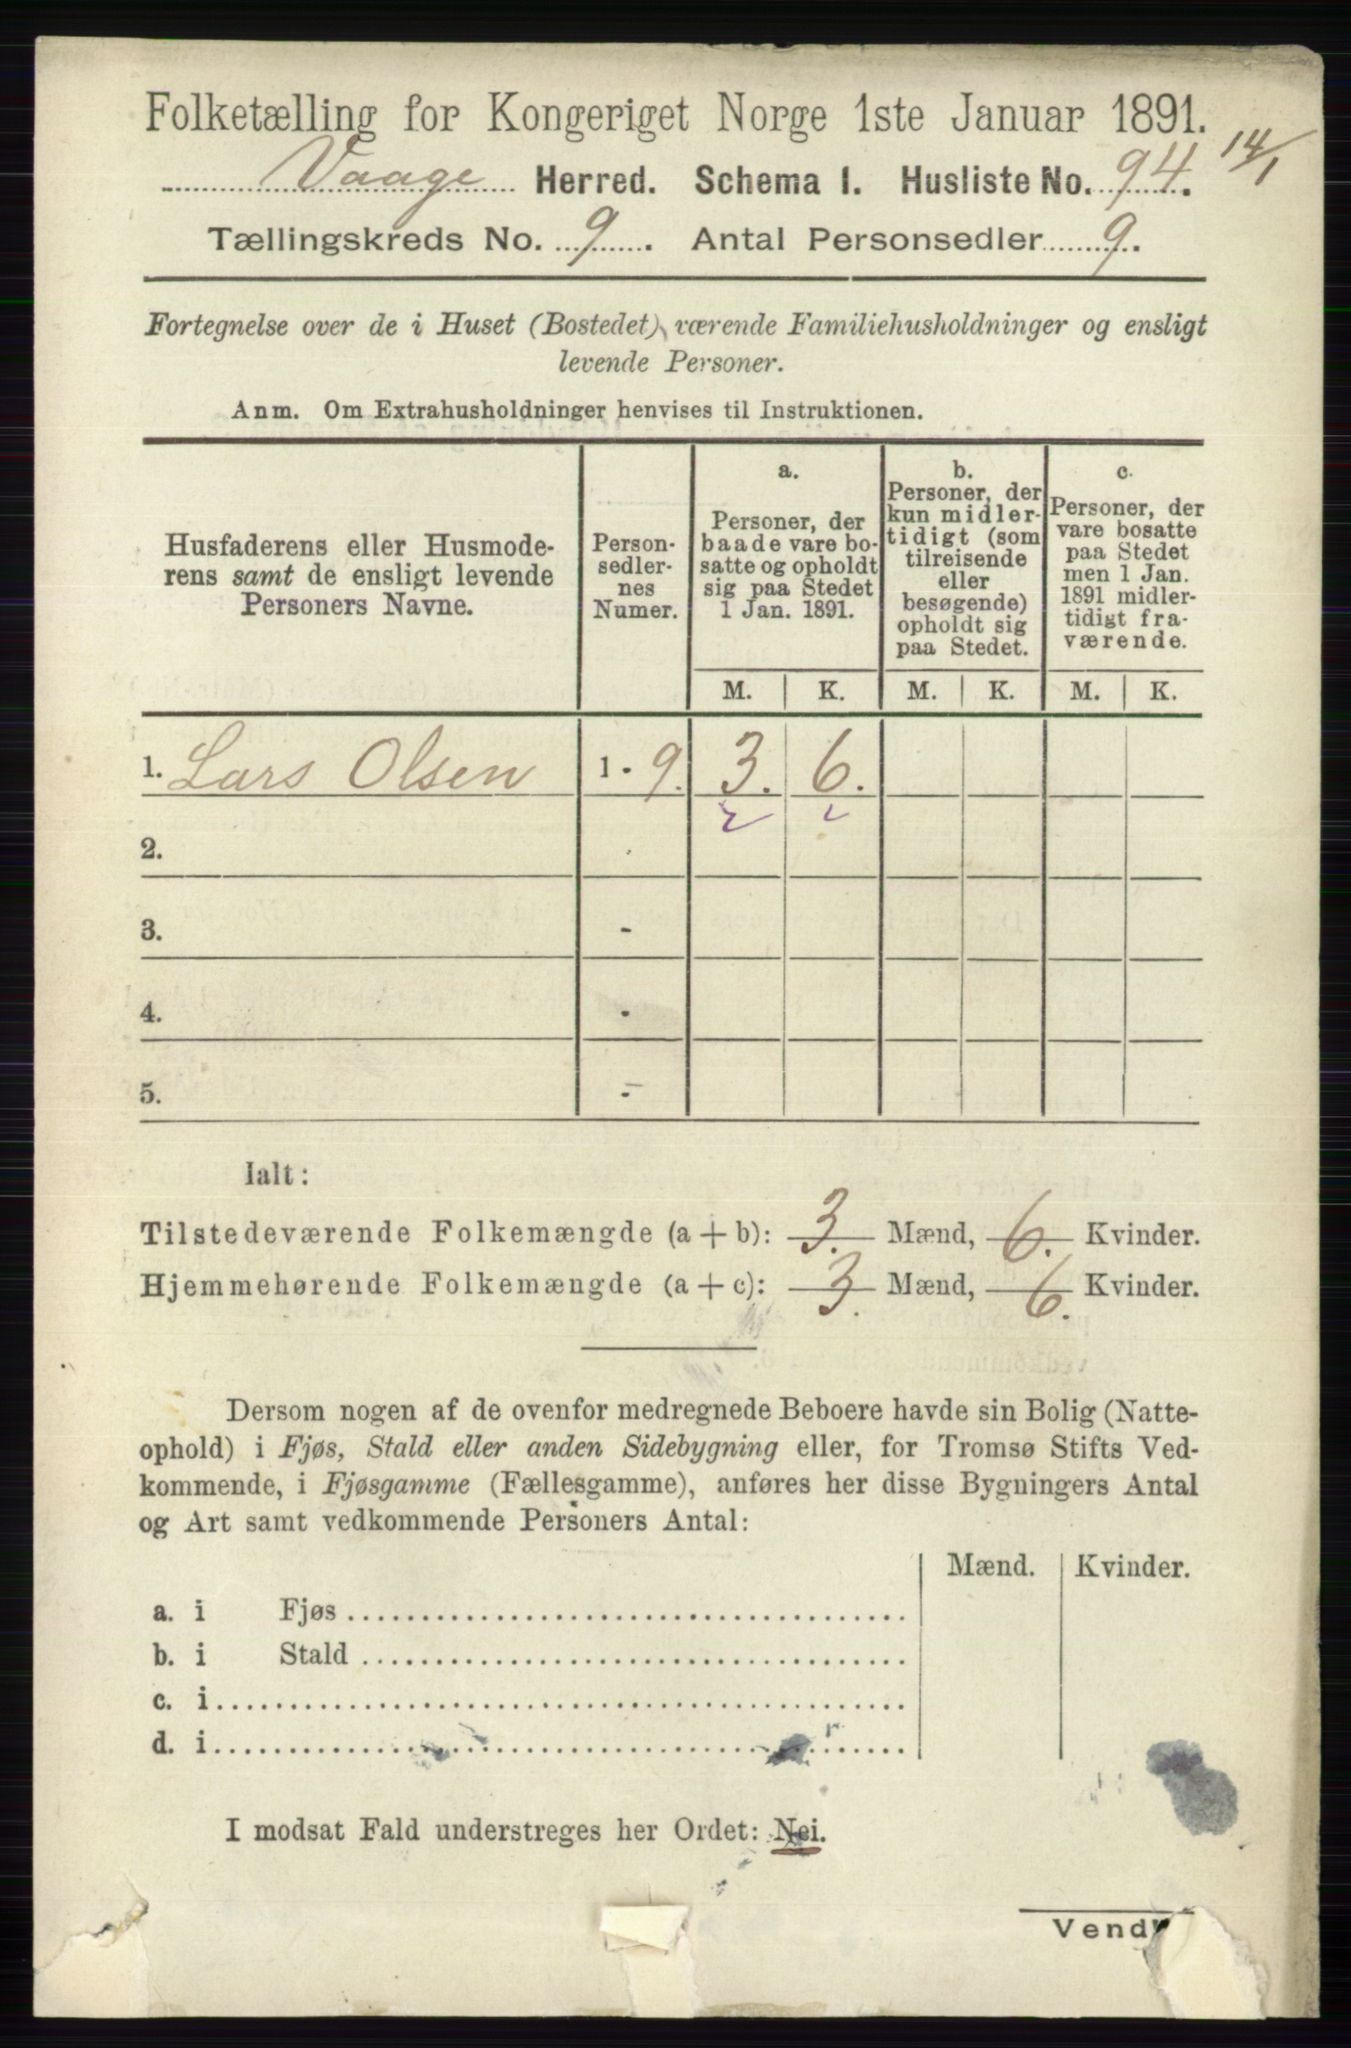 Folketælling for Kongeriget Norge 1ste Januar 1891.
Vaage Herred. Schema I. Husliste No. 94. 14/1
Tællingskreds No. 9. Antal Personsedler 9.
Fortegnelse over de i Huset (Bostedet) værende Familiehusholdninger og ensligt
levende Personer.
Anm. Om Extrahusholdninger henvises til Instruktionen.
Husfaderens eller Husmode-
rens samt de ensligt levende
Personers Navne.
Person-
sedler-
nes
Numer.
a.
Personer, der
baade vare bo-
satte og opholdt
sig paa Stedet
1 Jan. 1891.
b.
Personer, der
kun midler-
tidigt (som
tilreisende
eller
besøgende)
opholdt sig
paa Stedet.
c.
Personer, der
vare bosatte
paa Stedet
men 1 Jan.
1891 midler-
tidigt fra-
værende.
M. K. M. K. M. K.
1. Lars Olsen 1 - 9. 3. 6.
2.
3. -
4. -
5. -
Ialt:
Tilstedeværende Folkemængde (a + b): 3. Mænd, 6. Kvinder.
Hjemmehørende Folkemængde (a + c): 3. Mænd, 6. Kvinder.
Dersom nogen af de ovenfor medregnede Beboere havde sin Bolig (Natte-
ophold) i Fjøs, Stald eller anden Sidebygning eller, for Tromsø Stifts Ved-
kommende, i Fjøsgamme (Fællesgamme), anføres her disse Bygningers Antal
og Art samt vedkommende Personers Antal:
Mænd. Kvinder.
a. i Fjøs
b. i Stald
c. i
d. i
I modsat Fald understreges her Ordet: Nei.
Vend